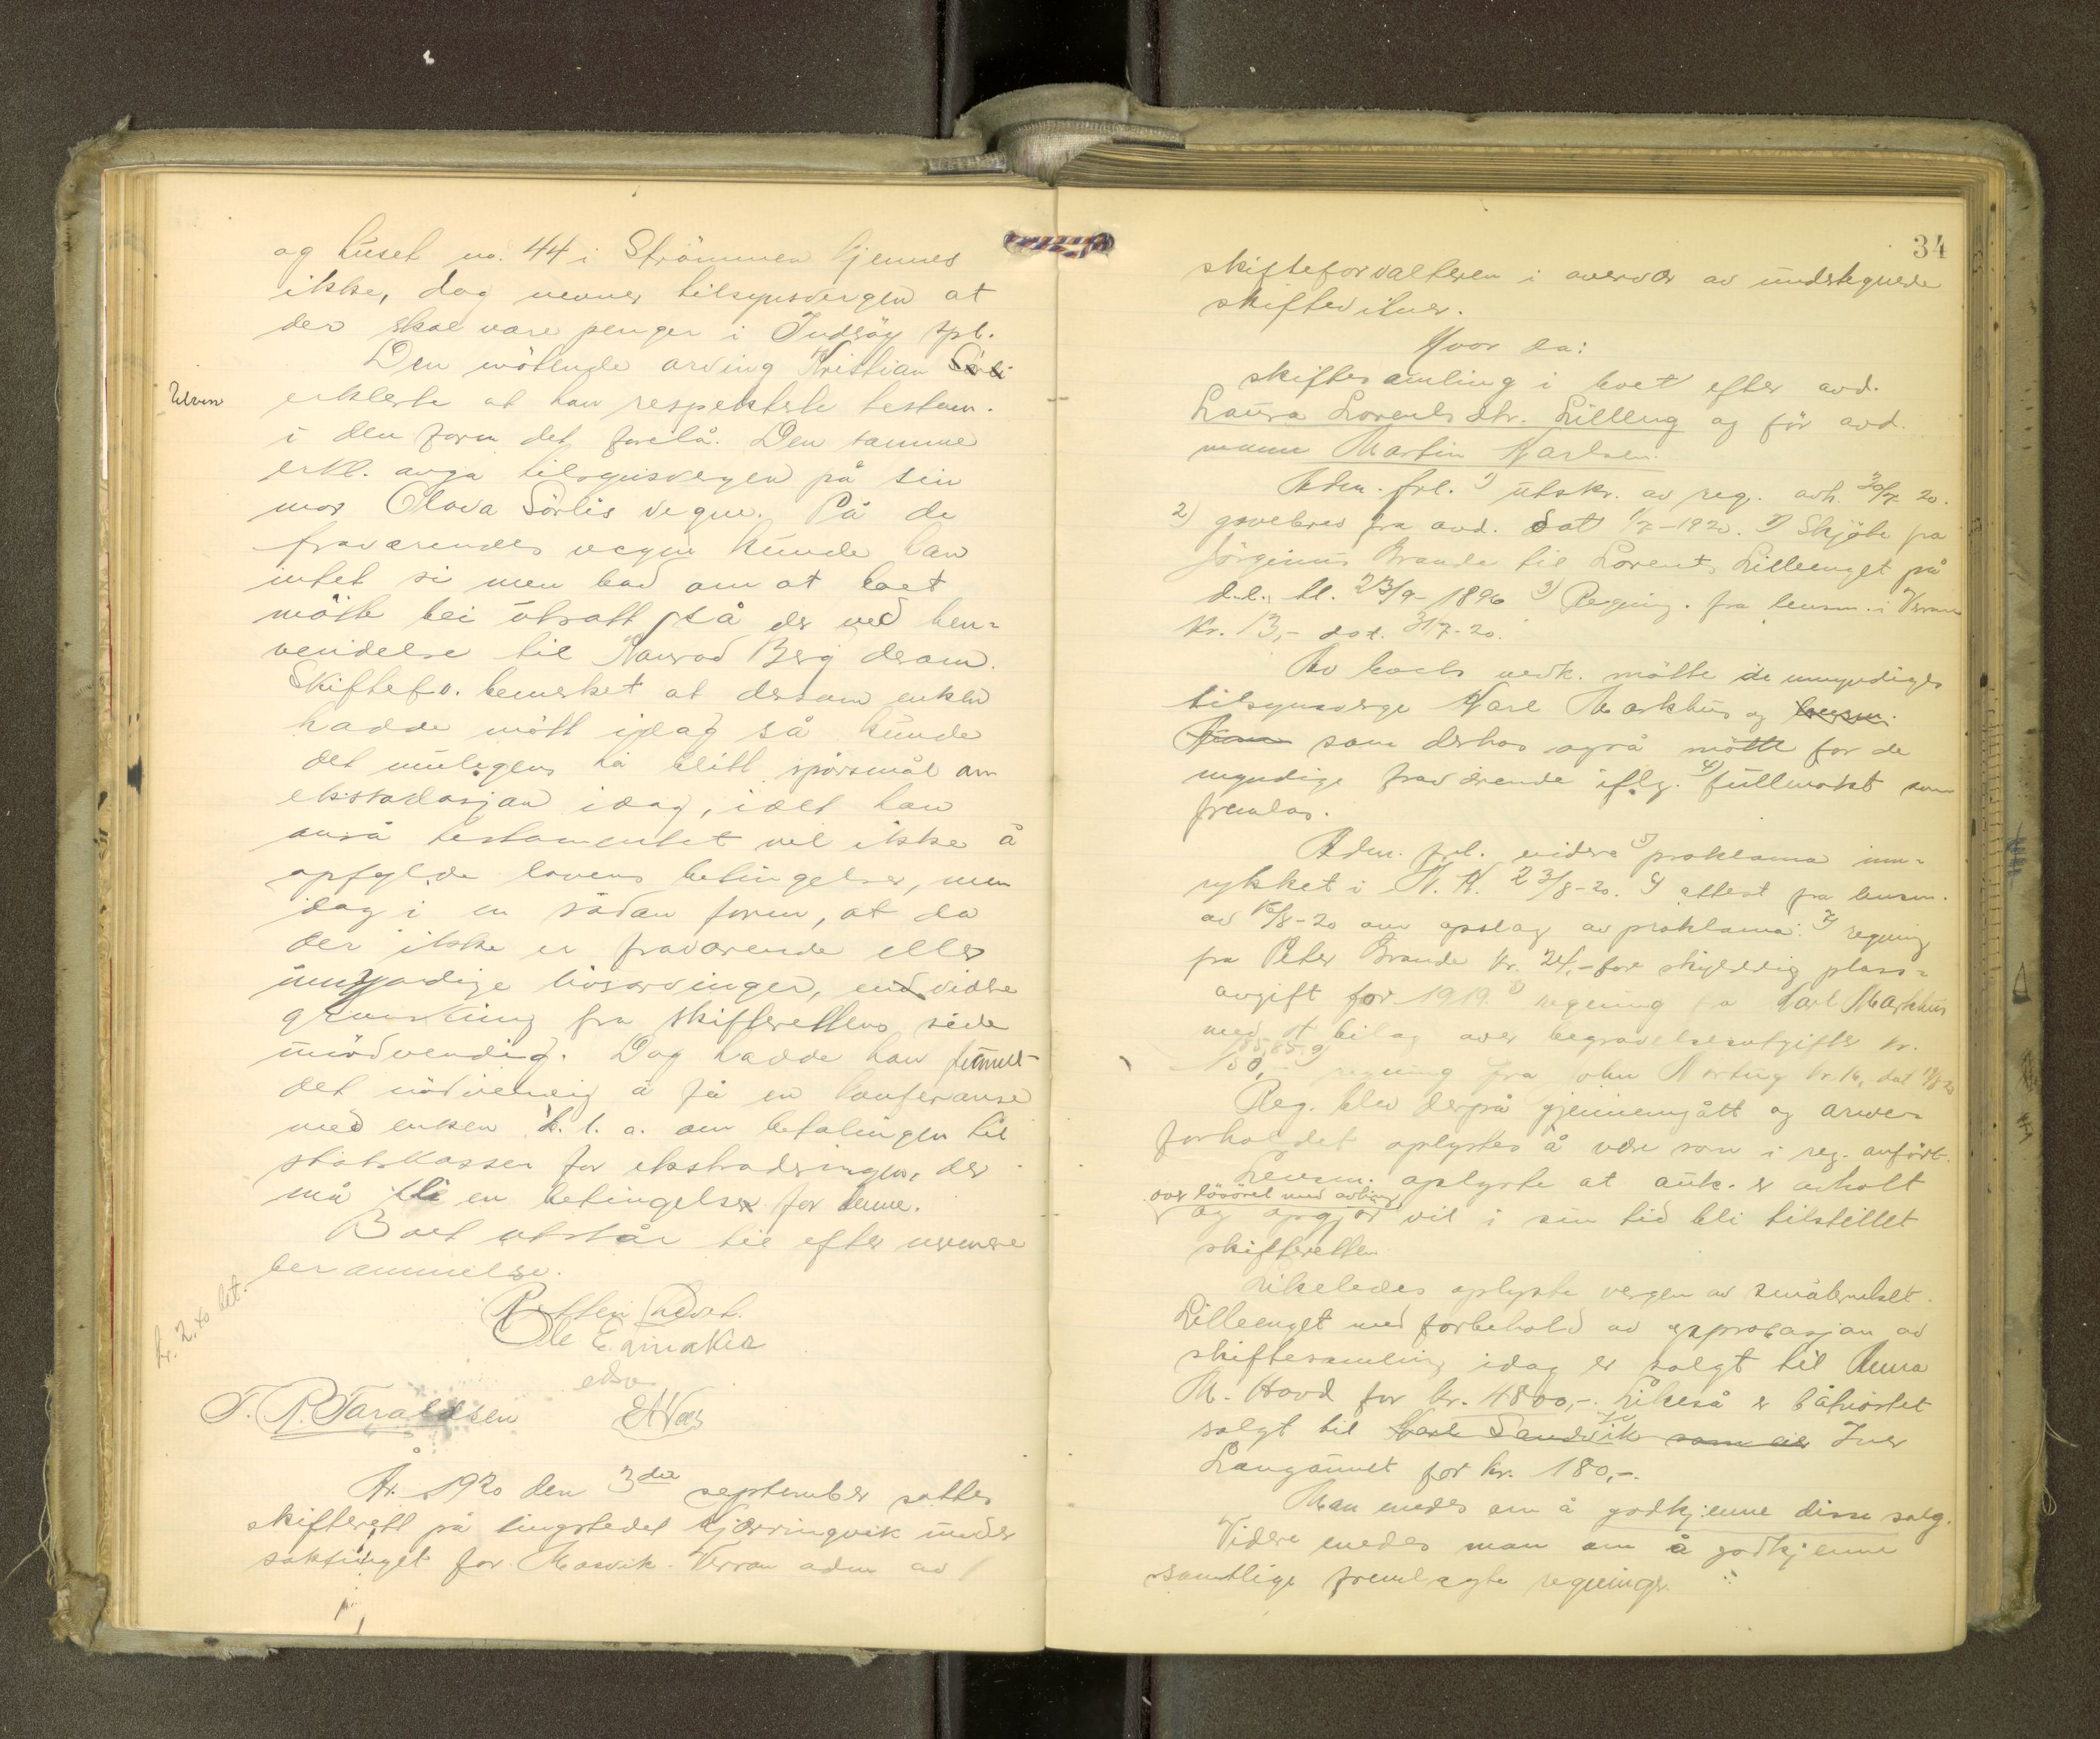 og huset no. 44 i Strömmen kjennes
ikke, dog nevner tilsynsvergen at
der skal være penger i Inderöy spb.
Den mötende arving Kristian Sörli
Ulven
erklerte at han respekterte testam.
i den form det forelå. Den samme
erkl. avga tilsynsvergen på sin
mor Olava Sörlis vegne. På de
fraværendes vegne kunde han
intet si men bad om at boet
måtte bli utsatt så der ved hen-
vendelse til Konrad Berg derom.
Skiftefo. bemerket at dersom enken
hadde mött idag så kunde
det muligens ha blitt spörsmål om
ekstradasjon idag, idet han
anså testamentet vel ikke å
opfylde lovens betingelser, men
dog i en sådan form, at da
der ikke er fraværende eller
umyndige livsarvinger, end videre
granskning fra skifterettens side
unödvendig. Dog hadde han funnet
det nödvendig å få en konferanse
med enken bl. a. om betalingen til
statskassen for ekstraderingen, der
må bli en betingelse for denne.
Boet utstår til efter nermere
berammelse.
kr. 2.40 bet.
Retten hevet.
Ole E.
T. R. Taraldsen
År 1920 den 3die september sattes
skifterett på tingstedet Kjerringvik under
saktinget for Mosvik-Verran adm av
34
skifteforvalteren i overvær av undertegnede
skiftevitner.
Hvor da:
skiftesamling i boet efter avd.
Laura Lorents dtr. Lilleng og för avd.
mann Martin Karlsen.
Adm. frl. 1) utskr. av reg. avh. 30/7 20.
2) gavebrev fra avd. dat 1/7-1920. 3) Skjöte fra
Jörginus Brande til Lorents Lilleenget på
d.e. tl. 23/9-1896 3) Regning fra lensm. i Verran
kr. 13,- dat. 31/7-20.
Av boets vedk. mötte de umyndiges
tilsynsverge Karl Markhus og lensm.
som derhos også mötte for de
myndige fraværende iflg. 4) fullmakt som
fremlas.
Adm. frl. videre 5) proklama inn-
rykket i N. K. 23/8-20. 6) attest fra lensm.
av 16/8-20 om opslag av proklama. 7) regning
fra Peter Brande kr. 24,- for skyldig plass-
avgift for 1919. 8) regning fra Karl Markhus
med bilag over begravelsesutgifter kr.
185,85. 9)
150,- regning fra John kr. 16, dat
Reg. blev derpå gjennemgått og arve-
forholdet oplystes å være som i reg. anfört.
Lensm. oplyste at auk. er avholt
over lösöret med avling
og opgjör vil i sin tid bli tilstillet
skifteretten
Likeledes oplyste vergen at småbruket
Lilleenget med forbehold av approbasjon av
skiftesamling idag er solgt til Anna
M. Hovd for kr. 4800,-. Likeså er båtnöstet
solgt til Karl Sandvik som eier Iver
Langåunet for kr. 180,-.
Man enedes om å godkjenne disse salg.
Videre enedes man om å godkjenne
samtlige fremlagte regninger.